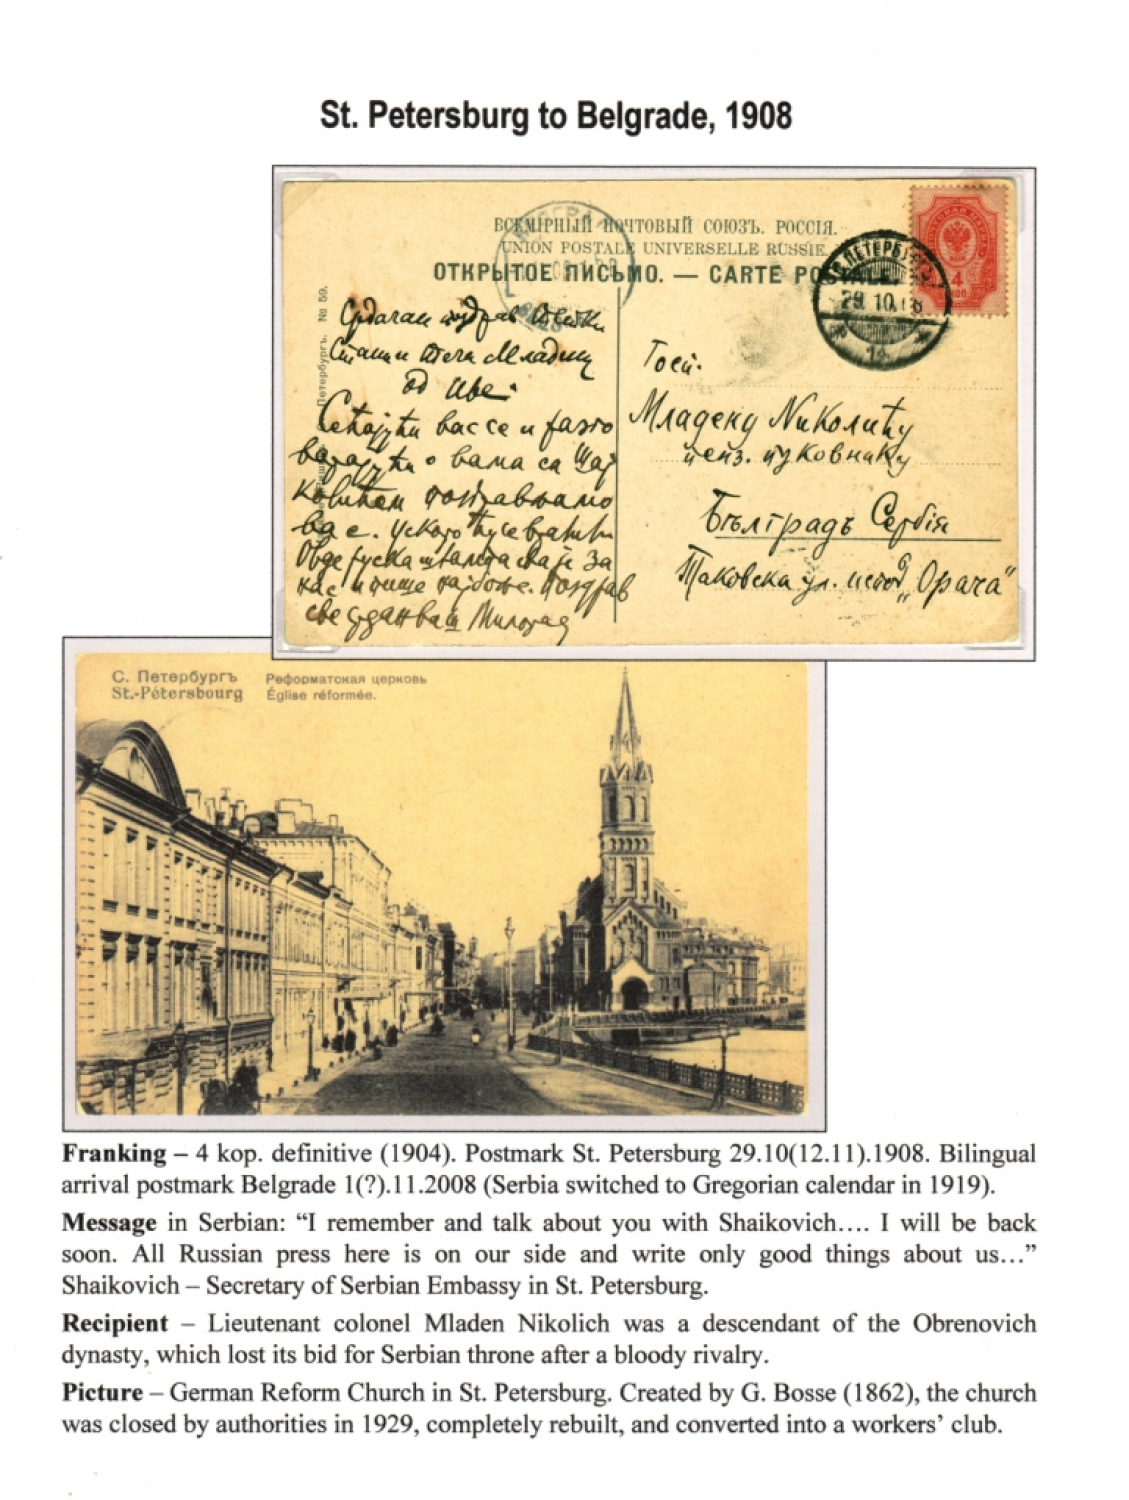 St. Petersburg to Belgrade, 1908
ВСЕМІРНЫЙ ПОЧТОВЫЙ СОЮЗЪ. РОССІЯ.
UNION POSTALE UNIVERSELLE RUSSIE.
ОТКРЫТОЕ ПИСЬМО. — CARTE POSTALE
С.ПЕТЕРБУРГЪ
29.10.08
4
КОП
Петербургъ. № 59.
Срдачан поздрав
Стани и Младену
од
Сећајући вас се и разго
варајући о вама са Шај
ковићем поздрављамо
вас. Ускоро ћу се вратити
Овде руска штампа сва је за
нас и пише најбоље. Поздрав
све срдачн ваш Милорад
Госп.
Младену Николићу
пенз. пуковнику
Бѣлградъ Сербія
Таковска ул. испод „Орача“
С. Петербургъ Реформатская церковь
St.-Pétersbourg Église réformée.
Franking – 4 kop. definitive (1904). Postmark St. Petersburg 29.10(12.11).1908. Bilingual
arrival postmark Belgrade 1(?).11.2008 (Serbia switched to Gregorian calendar in 1919).
Message in Serbian: “I remember and talk about you with Shaikovich…. I will be back
soon. All Russian press here is on our side and write only good things about us…”
Shaikovich – Secretary of Serbian Embassy in St. Petersburg.
Recipient – Lieutenant colonel Mladen Nikolich was a descendant of the Obrenovich
dynasty, which lost its bid for Serbian throne after a bloody rivalry.
Picture – German Reform Church in St. Petersburg. Created by G. Bosse (1862), the church
was closed by authorities in 1929, completely rebuilt, and converted into a workers’ club.